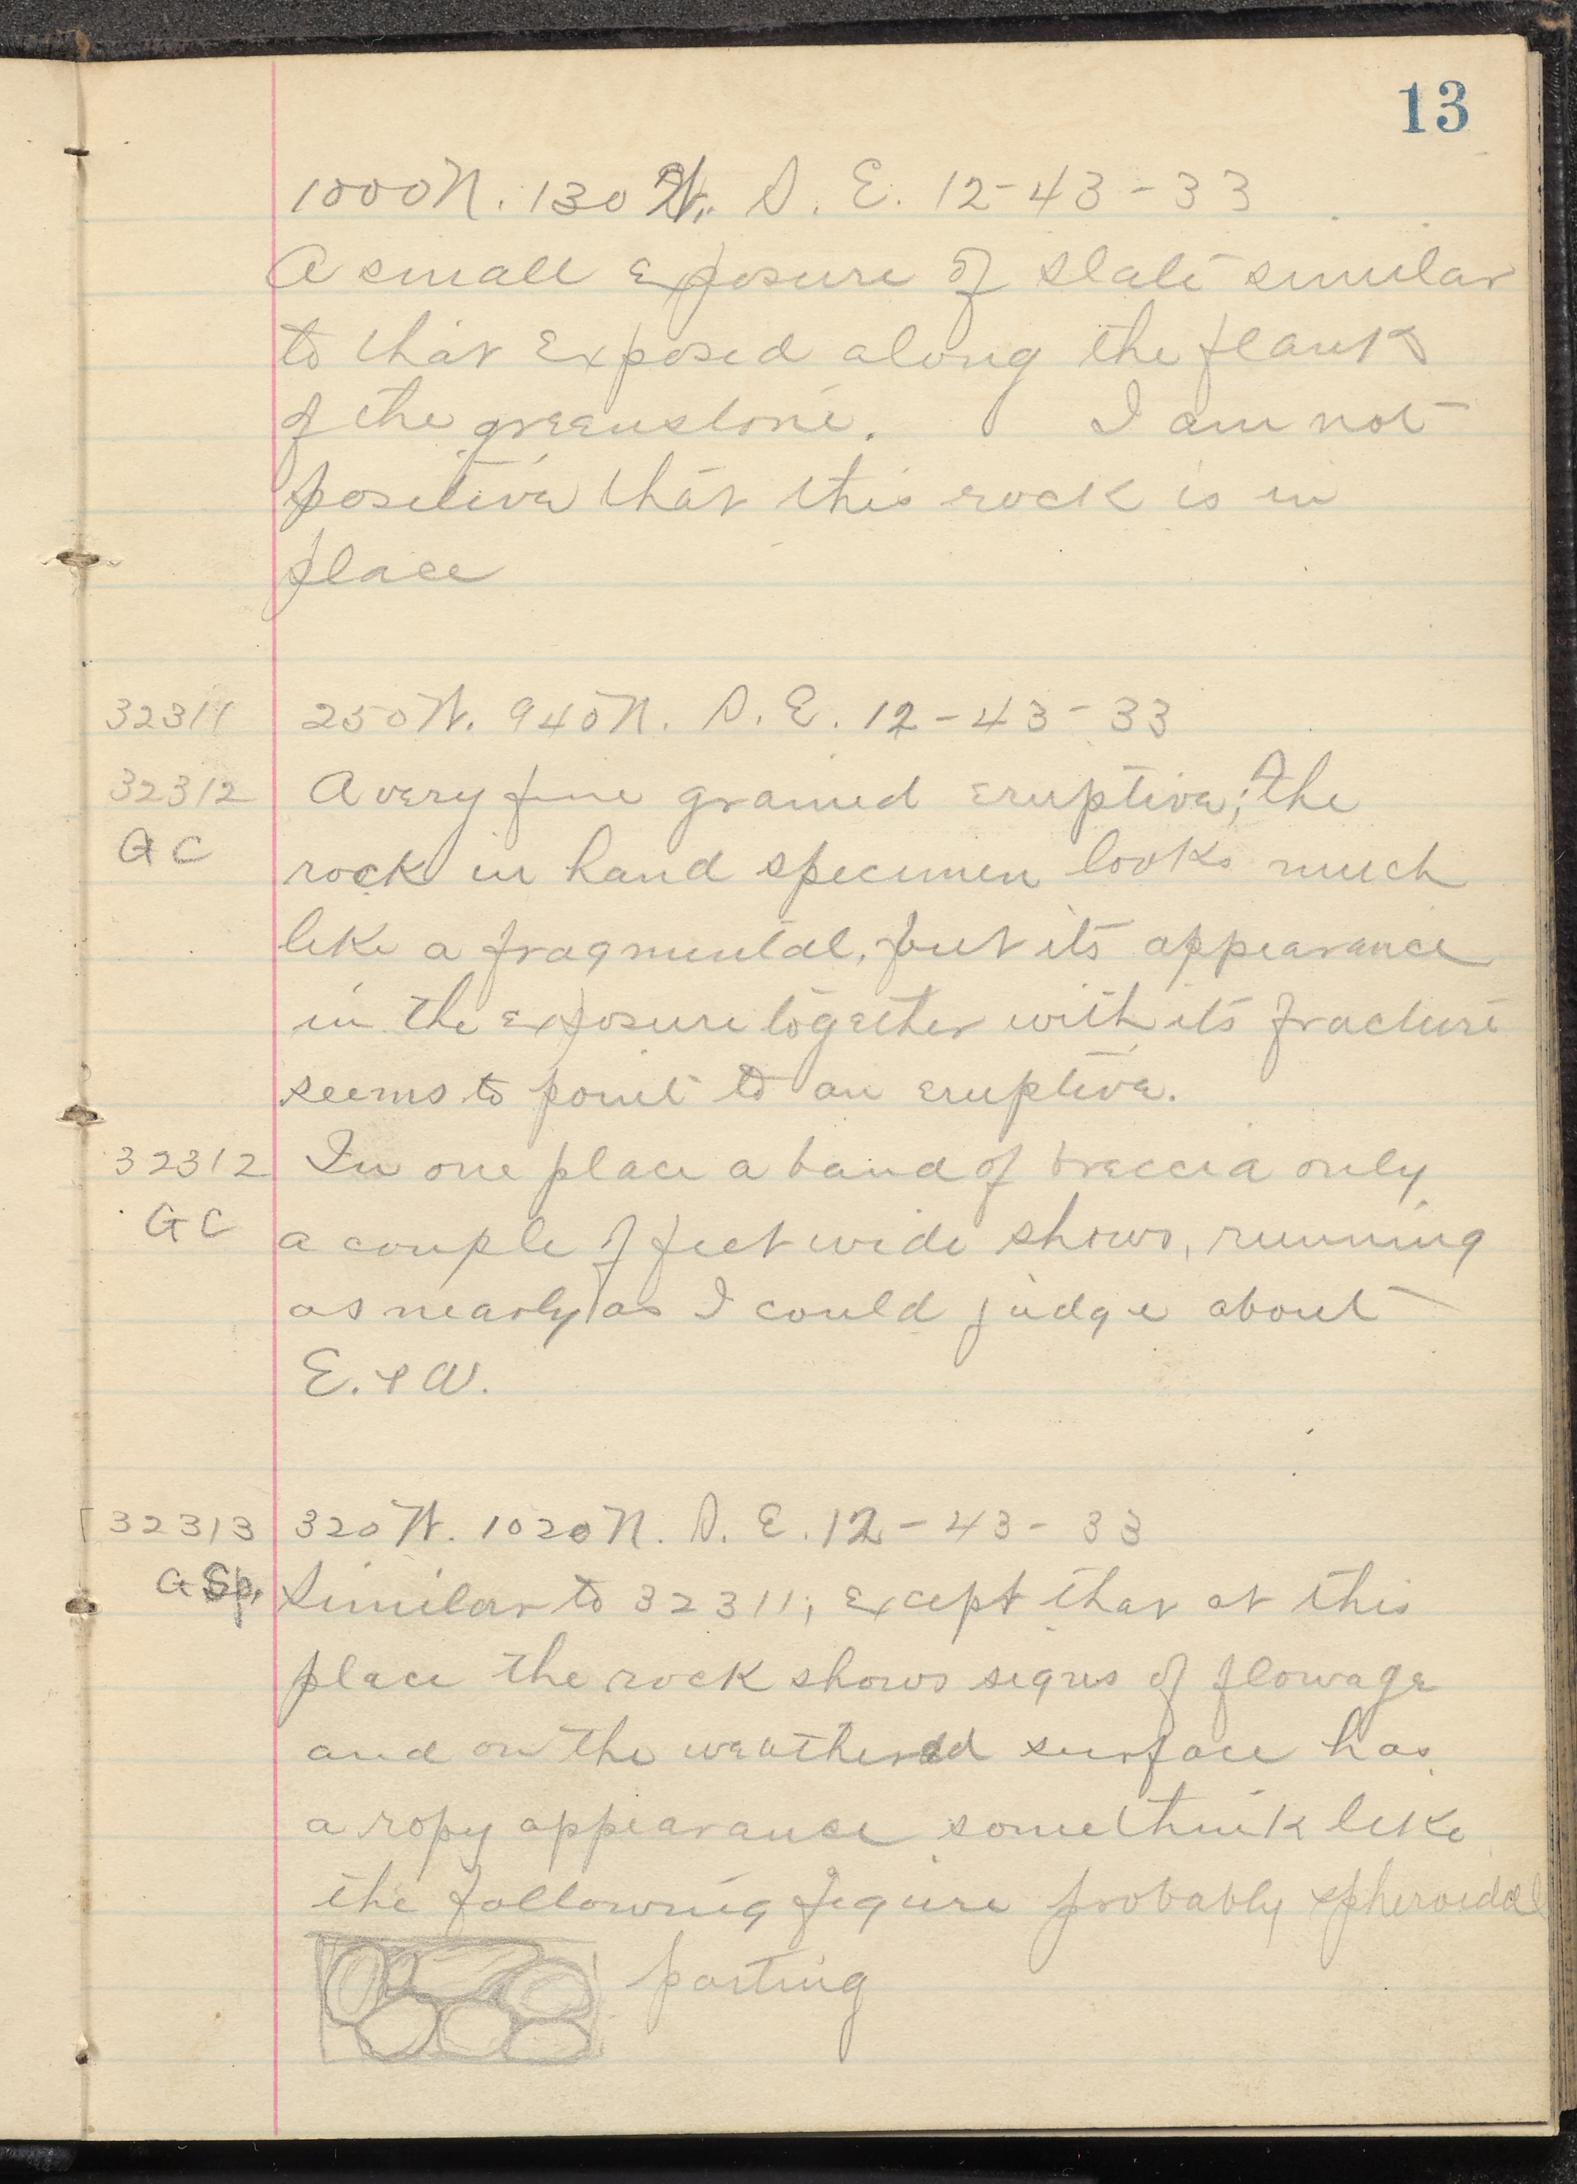 13
1000 N. 130 W. S. E. 12-43-33
A small exposure of slate similar
to that exposed along the flank
of the greenstone. I am not
positive that this rock is in
place
32311 250 W. 940 N. S. E. 12-43-33
32312 A very fine grained eruptive; the
GC rock in hand specimen looks much
like a fragmental, but its appearance
in the exposure together with its fracture
seems to point to an eruptive.
32312 In one place a band of breccia only
GC a couple of feet wide shows, running
as nearly as I could judge about
E. & W.
[32313 320 W. 1020 N. S. E. 12-43-33
G Sp. Similar to 32311, except that at this
place the rock shows signs of flowage
and on the weathered surface has
a ropy appearance somethink like
the following figure probably spheroidal
parting